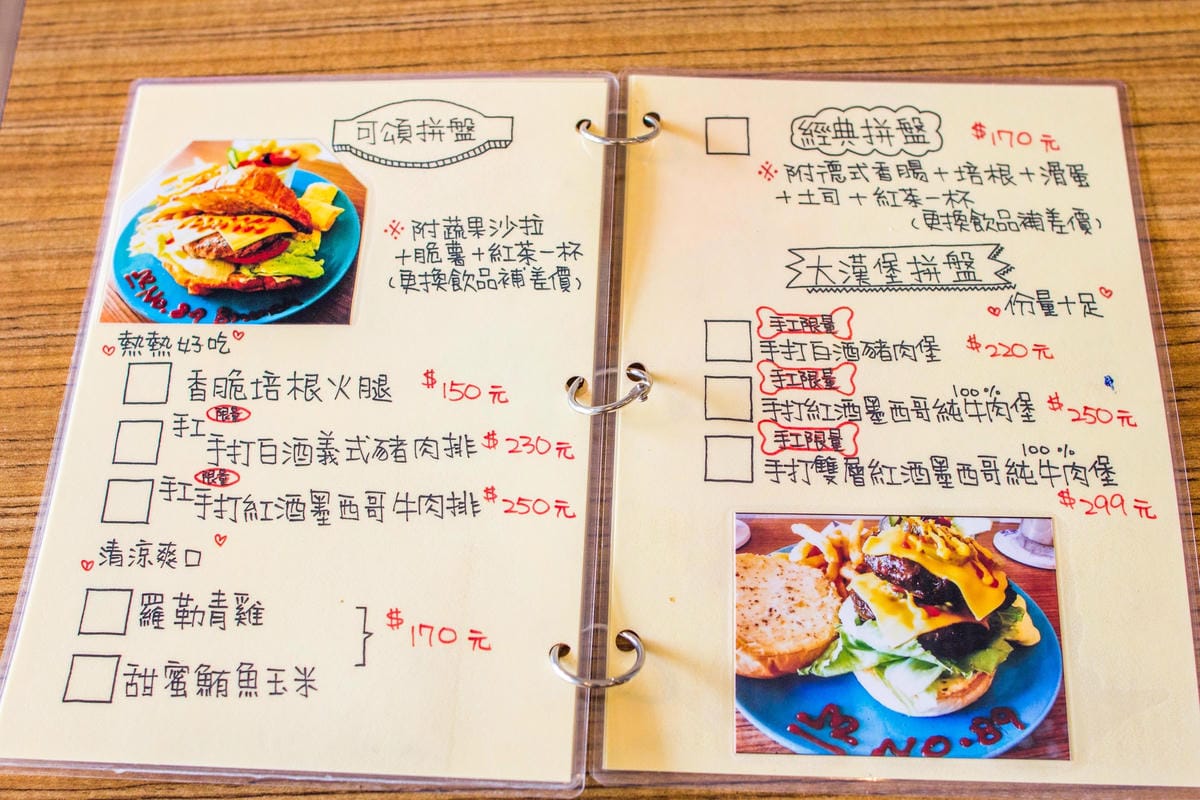 可頌拼盤
※附蔬果沙拉
+脆薯+紅茶一杯
(更換飲品補差價)
熱熱好吃
香脆培根火腿 $150元
手工限量
手打白酒義式豬肉排 $230元
手工限量
手打紅酒墨西哥牛肉排 $250元
清涼爽口
羅勒青雞
$170元
甜蜜鮪魚玉米
經典拼盤 $170元
※附德式香腸+培根+滑蛋
+土司+紅茶一杯
(更換飲品補差價)
大漢堡拼盤
份量十足
手工限量
手打白酒豬肉堡 $220元
手工限量
100%
手打紅酒墨西哥純牛肉堡 $250元
手工限量
100%
手打雙層紅酒墨西哥純牛肉堡
$299元
No.89
No.89